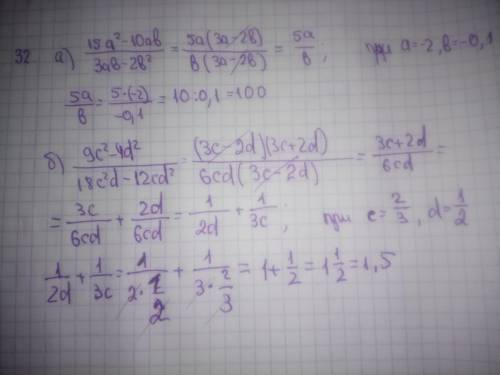 32 а) (15a²-10ab)/(3ab-2b²) = (5a(3a-2b))/(b(3a-2b)) = 5a/b; при a=-2, b=-0,1
5a/b = (5·(-2))/(-0,1) = 10:0,1=100
б) (9c²-4d²)/(18c²d-12cd²) = ((3c-2d)(3c+2d))/(6cd(3c-2d)) = (3c+2d)/(6cd) =
= 3c/(6cd) + 2d/(6cd) = 1/(2d) + 1/(3c); при c=2/3, d=1/2
1/(2d) + 1/(3c) = 1/(2·1/2) + 1/(3·2/3) = 1+1/2 = 1 1/2 = 1,5